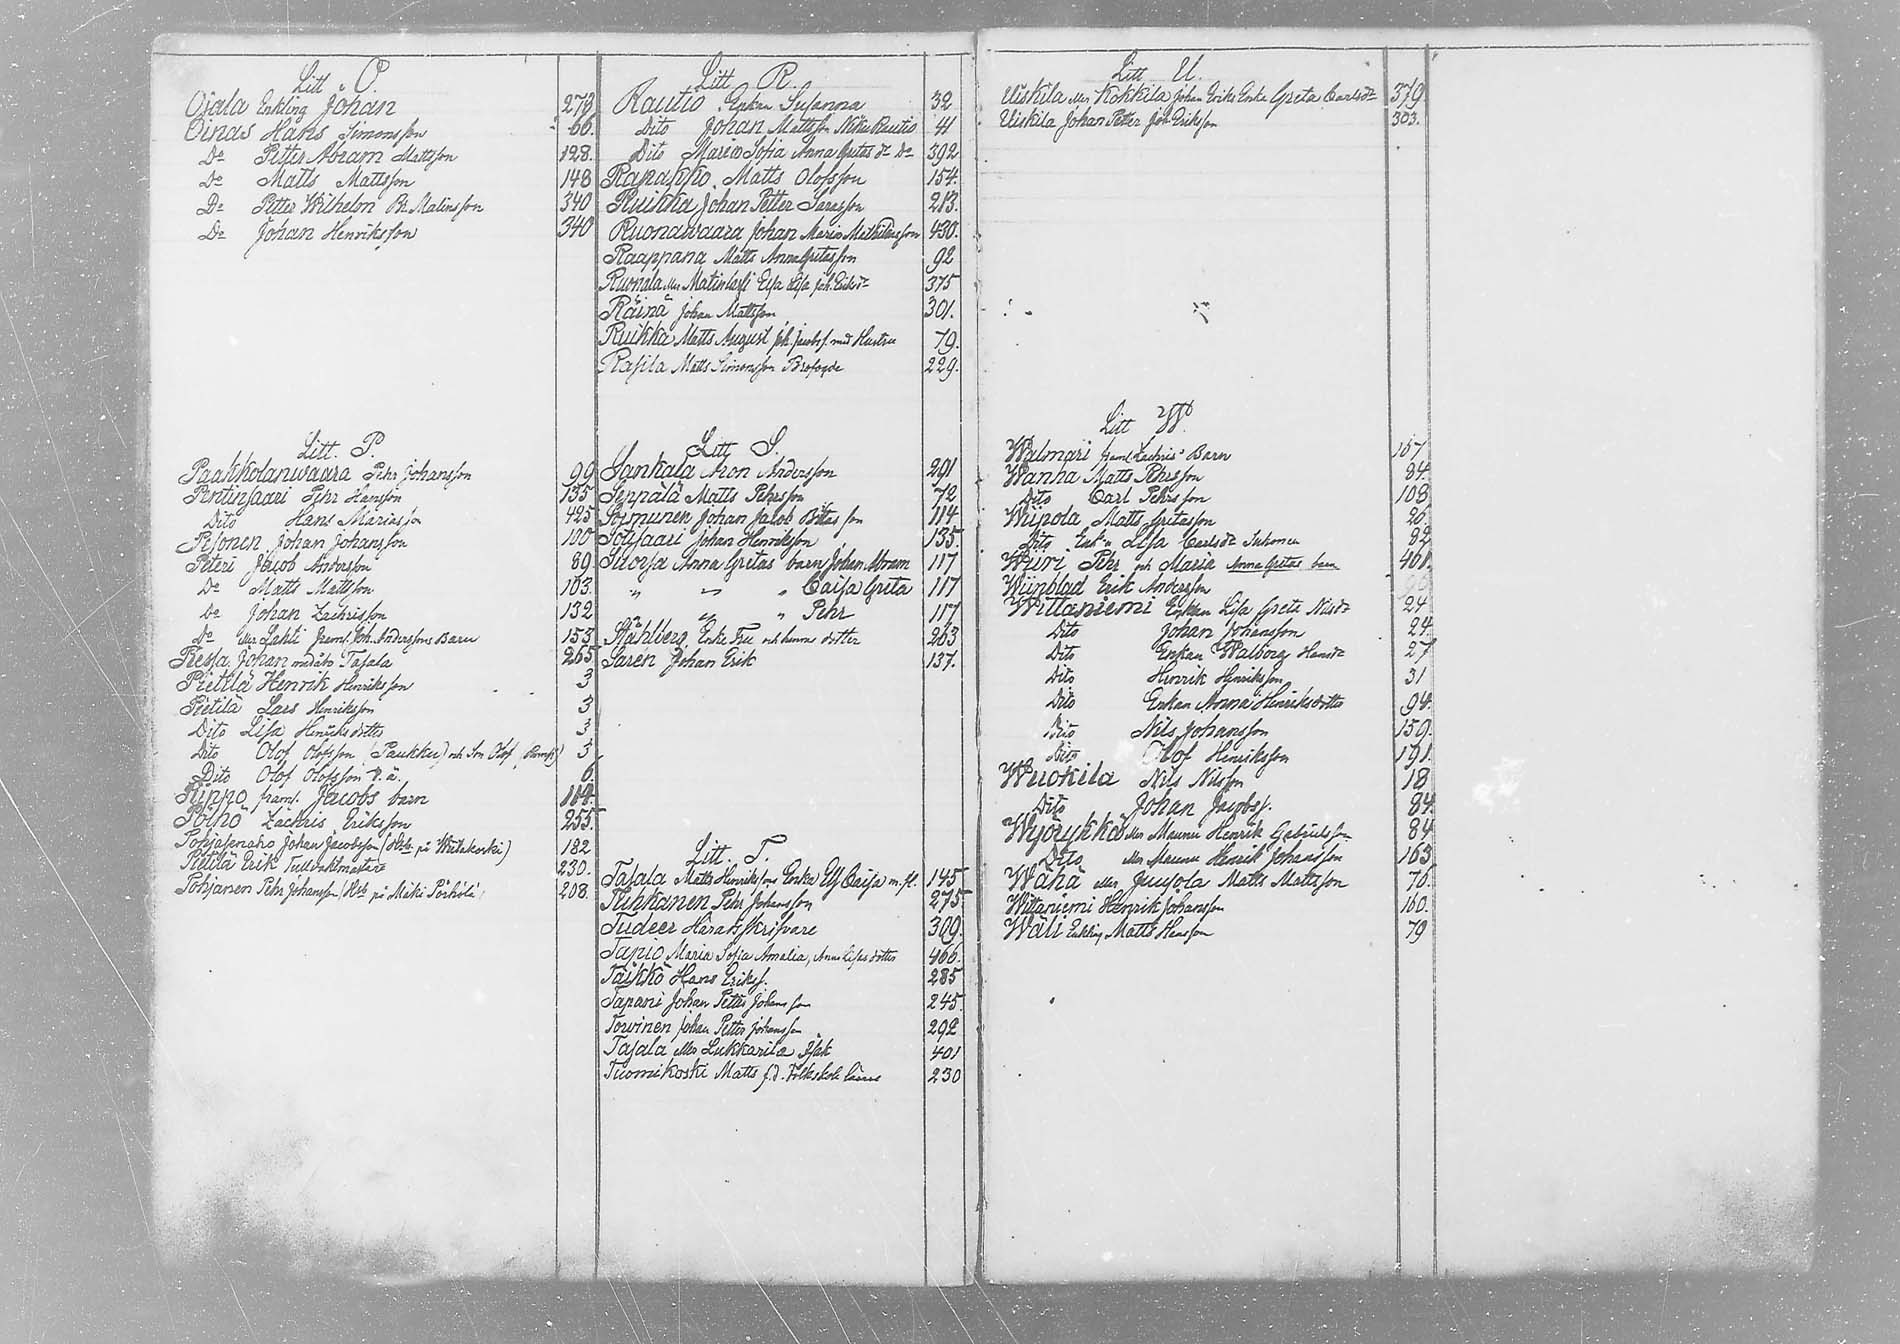 Litt O.
Ojala Enkling Johan 273
Oinas Hans Simonsson 66.
Do Petter Abram Mattsson 128.
Do Matts Mattsson 148
Do Petter Wilhelm Br. Malinsson 340
Do Johan Henriksson 340
Litt. P.
Paakkolanwaara Pehr Johansson 99
Pentinsaari Pehr Hansson 135
Dito Hans Mariasson 425
Pesonen Johan Johansson 100
Peteri Jacob Andersson 89
Do Matts Mattsson 103.
Do Johan Zachrisson 132
Do eller Lahti framl. Joh. Anderssons Barn 153
Pessa Johan Tasala 265
Pietilä Henrik Henriksson 3
Pietilä Lars Henriksson 3
Dito Lisa Henriksdotter 3
Dito Olof Olofsson (Paukku) och Son Olof 3
Dito Olof Olofsson d. ä. 6.
Pippo framl. Jacobs barn 104.
Poiho Zachris Eriksson 255.
Pohjasenaho Johan Jacobsson (Hsb på Wiitakoski) 182
Pietilä Erik Tullvaktmästare 230.
Pohjanen Pehr Johansson (Hsb på Mäki Pörhölä) 208.
Litt R.
Rautio Enkan Susanna 32
Dito Johan Mattsson Nikurautio 41
Dito Maria Sofia Anna Gretas dr Do 392
Rapakko Matts Olofsson 154.
Ruikka Johan Petter Sarasson 213.
Ruonawaara Johan Maria Mathildasson 430.
Raappana Matts AnnaGretasson 92
Ruonala eller Matinlassi Elsa Lisa Joh. Eriksdr 375
Räinä Johan Mattsson 301.
Ruikka Matts August Joh. Jacobss. med Hustru 79.
Rasila Matts Simonsson Brofogde 229.
Litt S.
Sankala Aron Andersson 291
Seppälä Matts Pehrsson 72
Soimunen Johan Jacob Britas son 114
Sotisaari Johan Henriksson 135.
Suorsa Anna Gretas barn Johan Abram 117
" " " Caisa Greta 117
" " " Pehr 117
Ståhlberg Enke Fru och hennes dotter 263
Saren Johan Erik 137.
Litt. T.
Tasala Matts Henrikssons Enka Els Caisa m. fl. 145
Tikkanen Pehr Johansson 275
Tudeer Häradsskrifvare 309.
Tapio Maria Sofia Amalia, Anna Lisas dotter 466.
Täikkö Hans Erikss. 285
Tapani Johan Petter Johansson 245
Towinen Johan Petter Johansson 292
Tasala eller Lukkarila Isak 401
Tuomikoski Matts f.d. Folkskole lärare 230
Litt U.
Uiskila eller Kokkila Johan Eriks Enka Greta Carlsdr 379
Uiskila Johan Petter Joh. Eriksson 303.
Litt W.
Walmari framl. Zachris' Barn 157
Wanha Matts Pehrsson 84.
Dito Carl Pehrsson 108
Wiipola Matts Gretasson 26
Dito Enk:n Lisa Carlsdr 82
Wiiri Pehr och Maria Anna Gretas barn 401.
Wiinblad Erik Andersson 96
Wittaniemi Enkan Lisa Greta Nilsdr 24
Dito Johan Johansson 24.
Dito Enkan Walborg Hansdr 27
Dito Henrik Henriksson 31
Dito Enkan Anna Henriksdotter 94.
Dito Nils Johansson 159.
Dito Olof Henriksson 191.
Wuokila Nils Nilsson 18
Dito Johan Jacobss. 84.
Wyörykkä eller Maunu Henrik Gabrielsson 84
Dito eller Maunu Henrik Johansson 163
Wähä eller Junsola Matts Mattsson 76.
Wittaniemi Henrik Johansson 160.
Wäli Enkling Matts Hansson 79